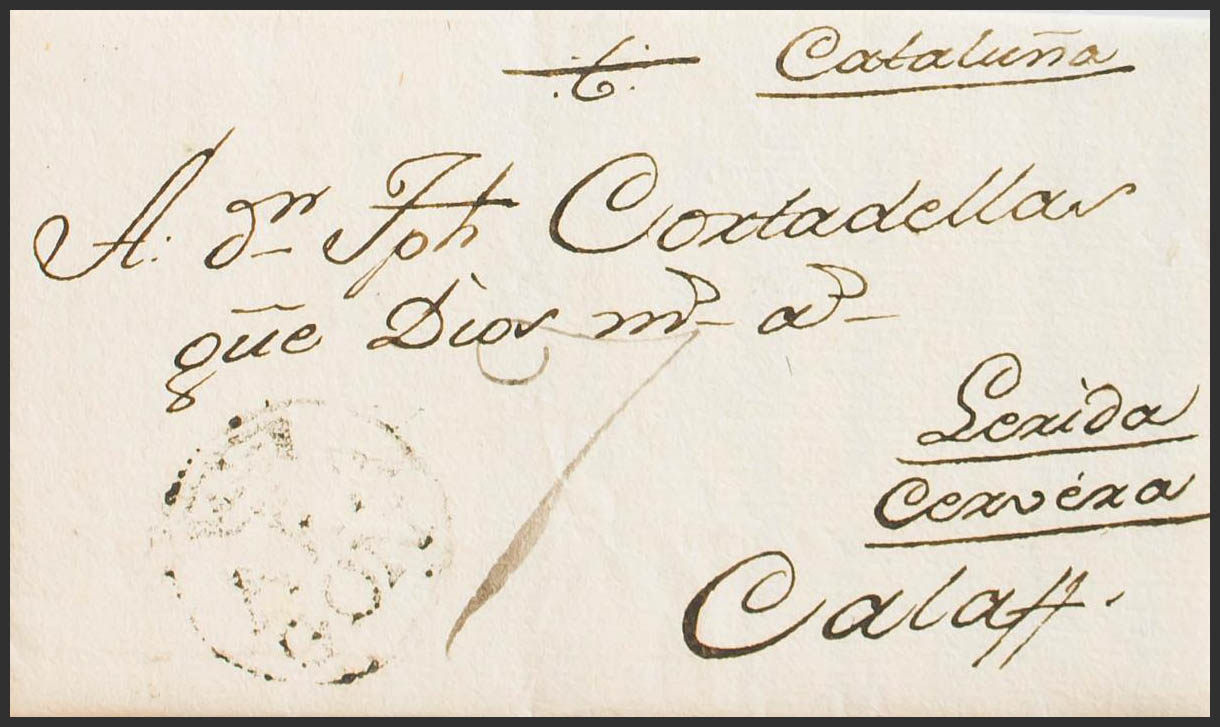 .t. Cataluña
A: dn Jph Cortadellas
güe Dios ms as
Lerida
Cervéra
Calaff.
7